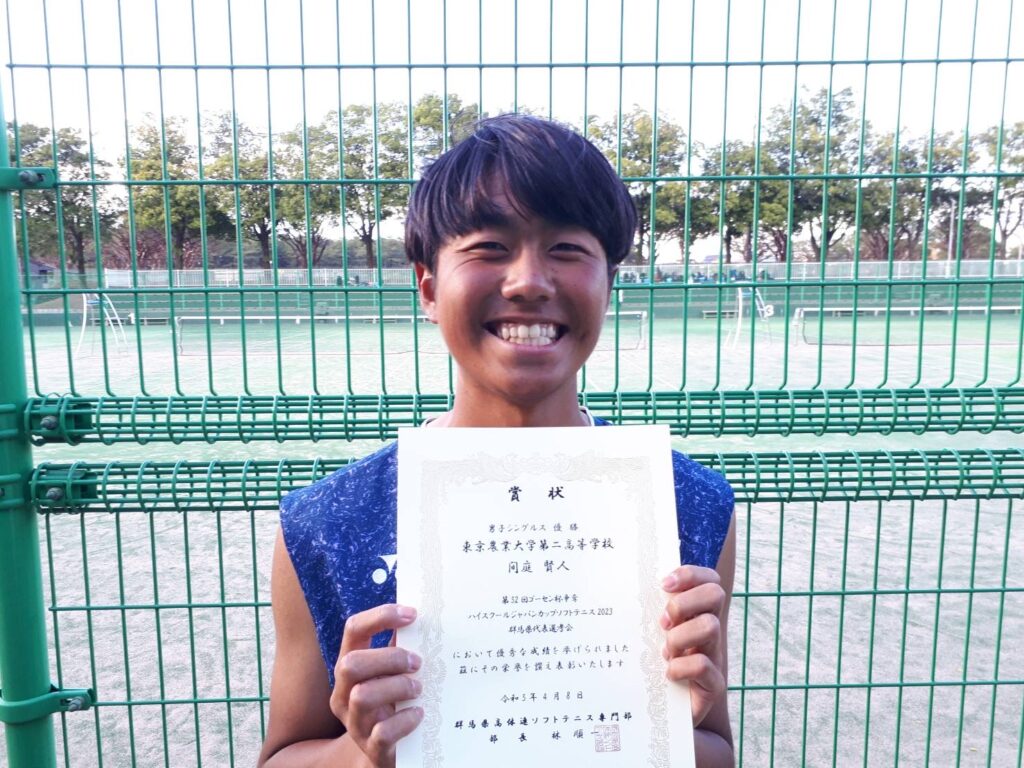 賞状
男子シングルス 優勝
東京農業大学第二高等学校
間庭 賢人
第32回ゴーセン杯争奪
ハイスクールジャパンカップソフトテニス2023
群馬県代表選考会
において優秀な成績を挙げられました
茲にその栄誉を讃え表彰いたします
令和5年4月8日
群馬県高体連ソフトテニス専門部
部長 林 順一